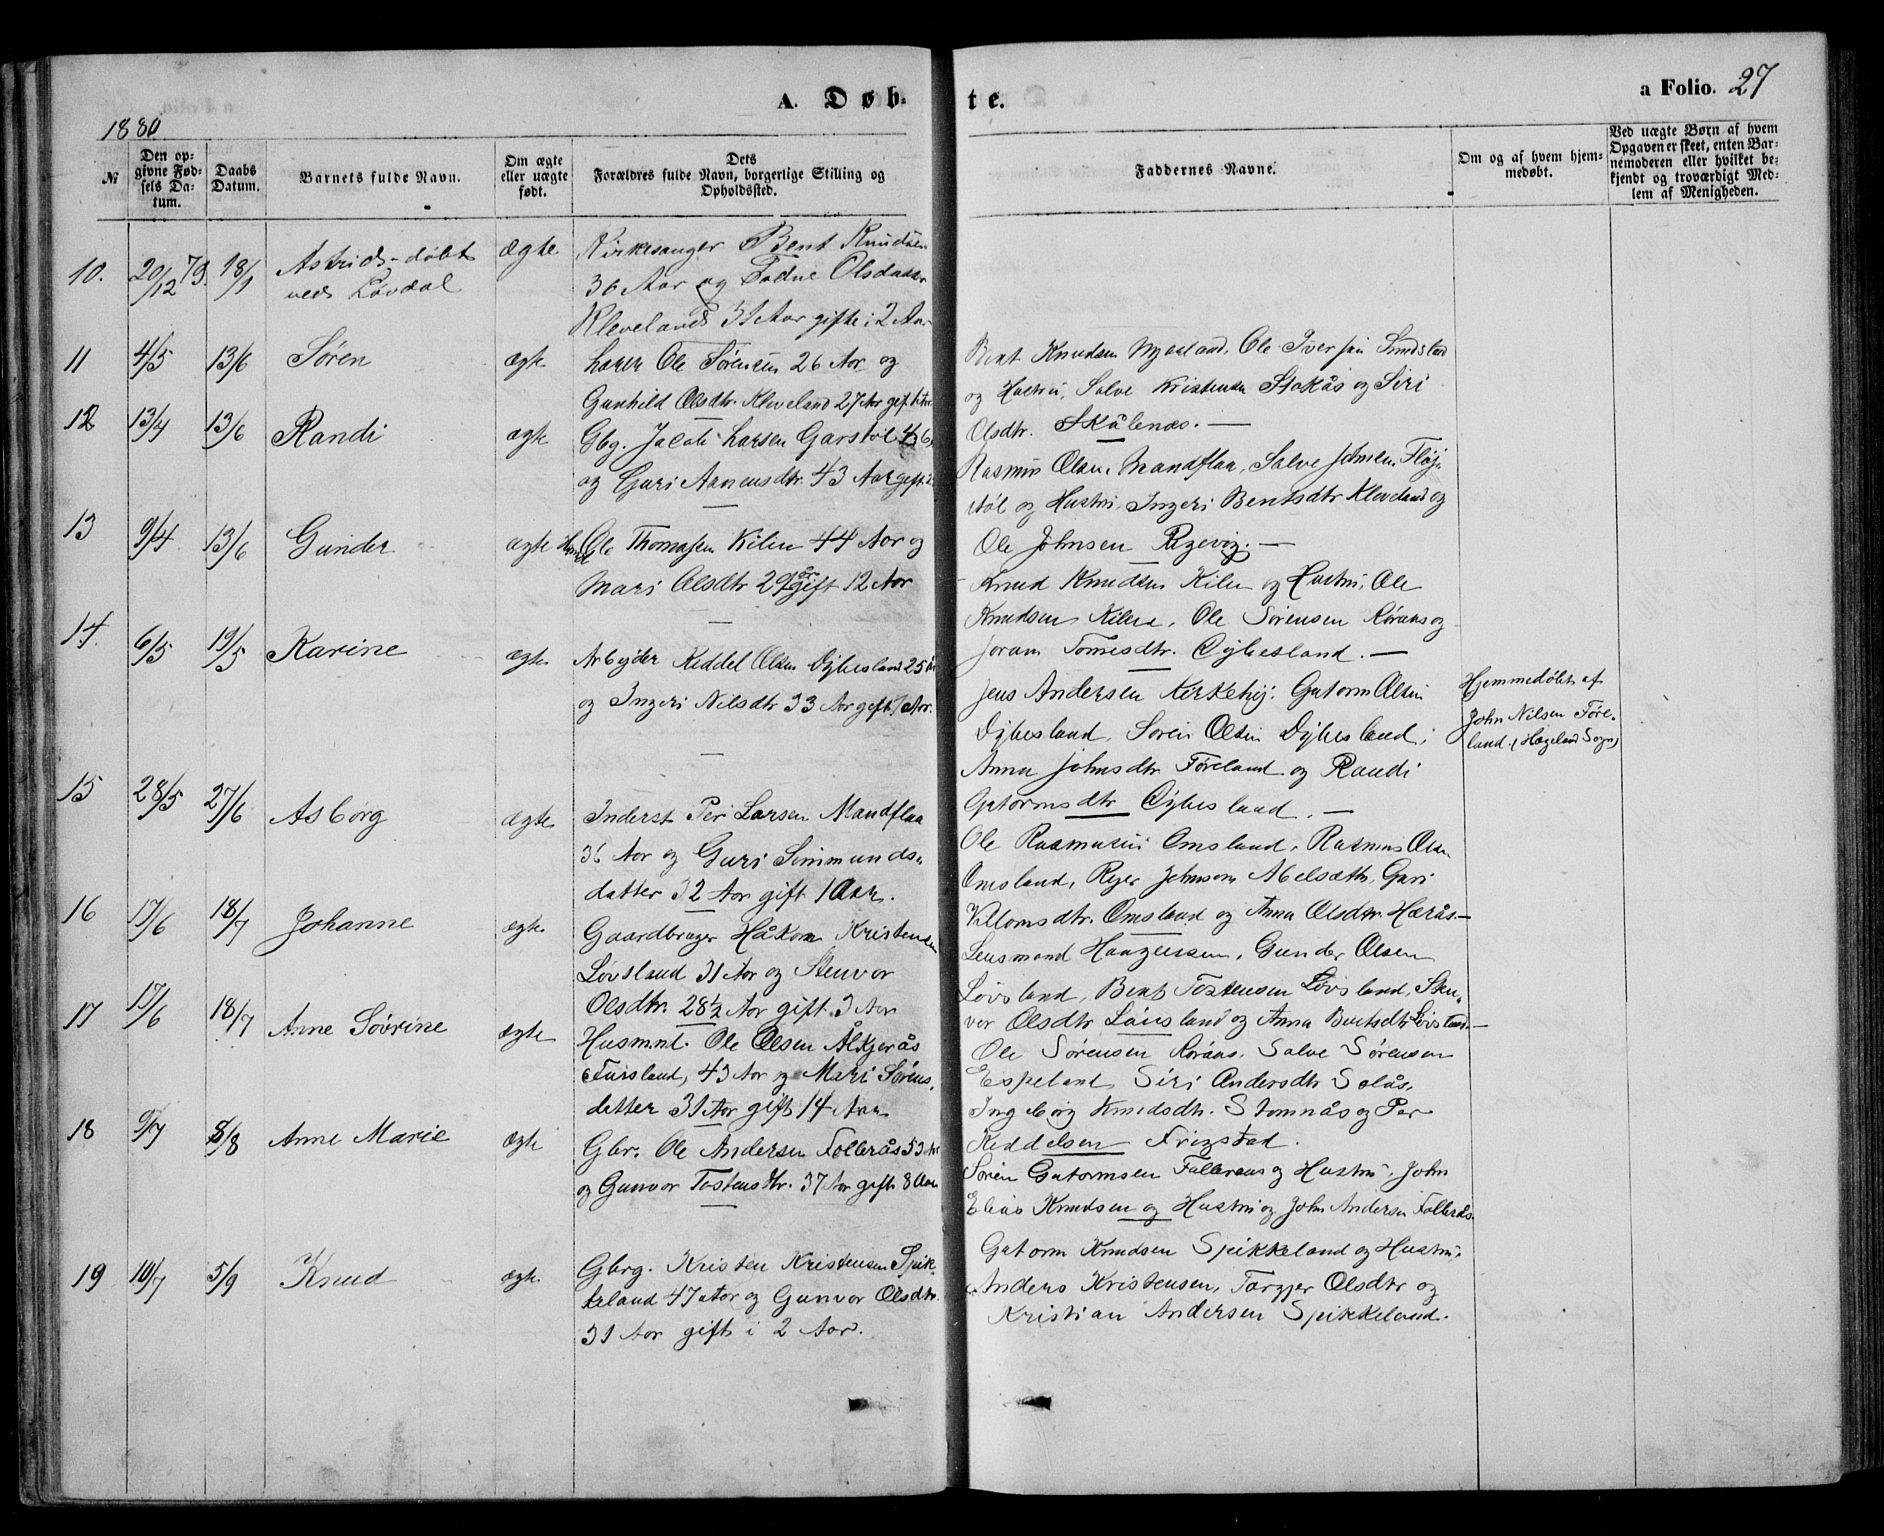 A. Døbte.
a Folio. 27
1880
№
Den opgivne Fødsels Datum.
Daabs Datum.
Barnets fulde Navn.
Om ægte eller uægte født.
Dets Forældres fulde Navn, borgerlige Stilling og Opholdssted.
Faddernes Navne.
Om og af hvem hjemmedøbt.
Ved uægte Børn af hvem Opgaven er skeet, enten Barnemoderen eller hvilket bekjendt og troværdigt Medlem af Menigheden.
10. 20/12 79. 18/1 Astrid - døbt
ved Løvdal
ægte
Kirkesanger Bent Knudsen
36 Aar og Todne Olsdatter
Kleveland 31 Aar gifte i 2 Aar
11 4/5 13/6 Søren
ægte
Lærer Ole Sørensen 26 Aar og
Gunhild Olsdtr. Kleveland 27 Aar
Bent Knudsen Ole Iversen
og Hustru, Salve Kristensen Stokås og Siri
Olsdtr. Skålenæs. —
12 13/4 13/6 Randi
ægte
Gbg. Jacob Larsen Garstøl
og Guri 43 Aar gift
Rasmus Olsen Mandflaa, Salve Johnsen Fløj-
støl og Hustru, Ingeri Bentsdtr Kleveland og
Ole Johnsen Rygevig. —
13 9/4 13/6 Gunder
ægte
Ole Thomassen Kilen 44 Aar og
Mari Olsdtr 29 år gift 12 Aar
Knud Knudsen Kilen og Hustru, Ole
Knudsen Kilen, Ole Sørensen Røraas og
Joran Tomesdtr. Dybesland. —
14. 6/5 19/5 Karine
ægte
Arbejder Keddel Olsen Dybesland 25 år
og Ingeri Nilsdtr 33 Aar gift 1 Aar.
Jens Andersen Gutorm Olsen
Dybesland, Søren Olsen Dybesland,
Anna Johnsdtr Føreland og Randi
Gutormsdtr Dybesland. —
Hjemmedøbt af
John Nilsen Føre-
land. (Hægeland Sogn)
15 28/5 27/6 Asborg
ægte
Inderst Per Larsen Mandflaa
36 Aar og Guri Simmunds-
datter 32 Aar gift 1 Aar.
Ole Rasmusen Omsland, Rasmus Olsen
Omsland, Rejer Johnsen Abelsæth, Guri
Villomsdtr. Omsland og Anna Olsdtr. Hærås —
16 17/6 18/7 Johanne
ægte
Gaardbruger Håkon Kristensen
Løvsland 31 Aar og Stenvor
Olsdtr. 28½ Aar gift 3 Aar
Lensmand Haagensen, Gunder Olsen
Løvsland, Bent Tostensen Løvsland, Sten-
vor Olsdtr Løvsland og Anna Bentsdtr Løvsland —
17 17/6 18/7 Anne Sövrine
ægte
Husmnd. Ole Olsen Ålkjerås
43 Aar og Mari Sørens-
datter 31 Aar gift 14 Aar
Ole Sørensen Røraas, Salve Sørensen
Espeland, Siri Andersdtr Solås,
Ingeborg Knudsdtr. Stomnås og Per
Keddelsen Frigstad.
18 9/7 8/8 Anne Marie
ægte
Gbr. Ole Andersen Follerås 53 Aar
og Gunvor Tostensdtr. 37 Aar gift 8 Aar
Søren Gutormsen Folleraas og Hustru, John
Elias Knudsen og Hustru og John Andersen Follerås.
19 10/7 5/9 Knud
ægte
Gbrg. Kristen Kristensen Spik-
keland 47 Aar og Gunvor Olsdtr.
31 Aar gift i 2 Aar.
Gutorm Knudsen Spikkeland og Hustru,
Anders Kristensen, Torgjer Olsdtr og
Kristian Andersen Spikkeland.